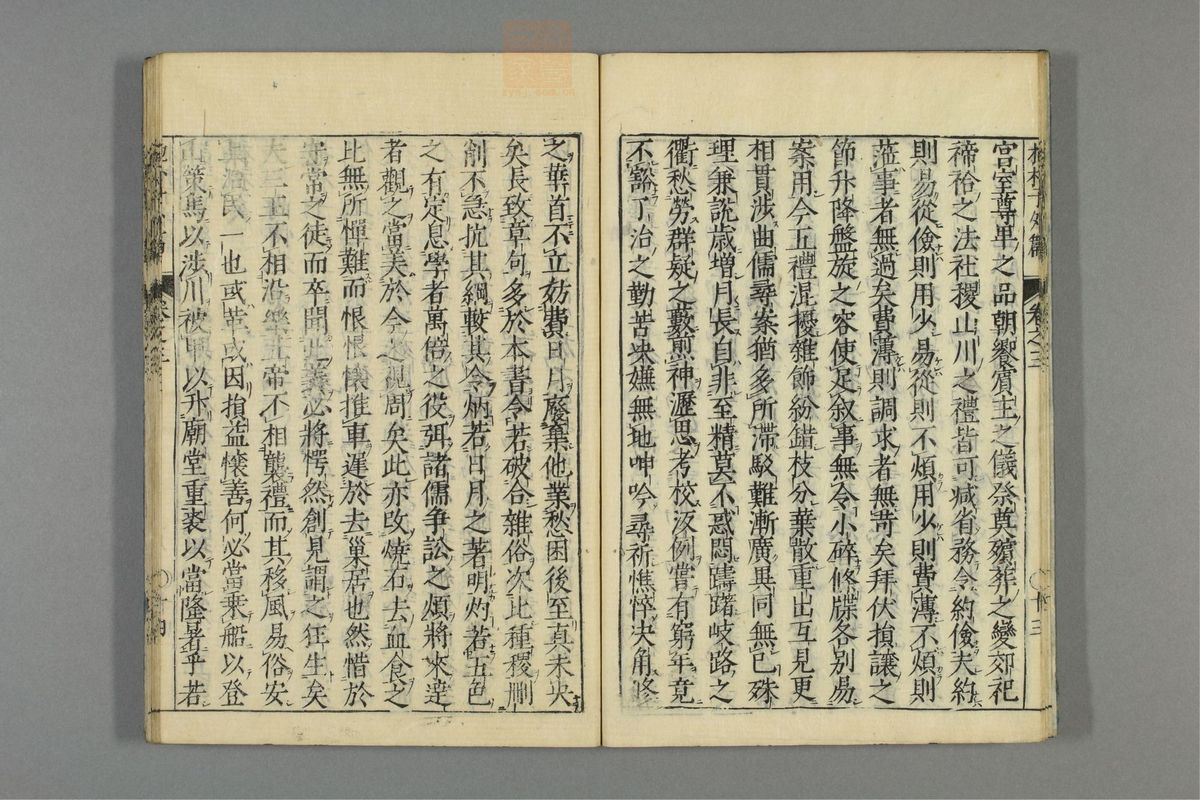 宮室尊卑之品朝饗賓主之儀祭奠殯葬之變郊祀
禘祫之法社稷山川之禮皆可減省務令約儉夫約
則易從儉則用少易從則不煩用少則費薄不煩則
蒞事者無過矣費薄則調求者無苛矣拜伏揖讓之
節升降盤旋之容使足叙事無令小碎條牒各別易
案用今五禮混擾雜飾紛錯枝分葉散重出互見更
相貫涉曲儒尋案猶多所滯駁難漸廣異同無已殊
理兼說歳増月長自非至精莫不惑悶躊躇岐路之
衢愁勞群疑之藪煎神瀝思考校汳例嘗有窮年竟
不豁了治之勤苦决嫌無地呻吟尋析憔悴决角修
之華首不立妨費日月廢棄他業愁困後至真未央
矣長致章句多於本書令若破合雜俗次比種稷刪
削不急抗其綱較其令炳若日月之著明灼若五色
之有定息學者萬倍之役弭諸儒争訟之煩將來達
者觀之當美於今之視周矣此亦攺燒石去血食之
比無所憚難而恨恨懐推車遅於去巢居也然惜於
守常之徒而卒聞此義必將愕然創見謂之狂生矣
夫三王不相沿樂五帝不相襲禮而其移風易俗安
其治民一也或革或因損益懐善何必當乗船以登
山策馬以渉川被甲以升廟堂重裘以當隆暑乎若